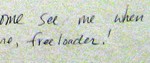 ome see me when
me, freeloader!